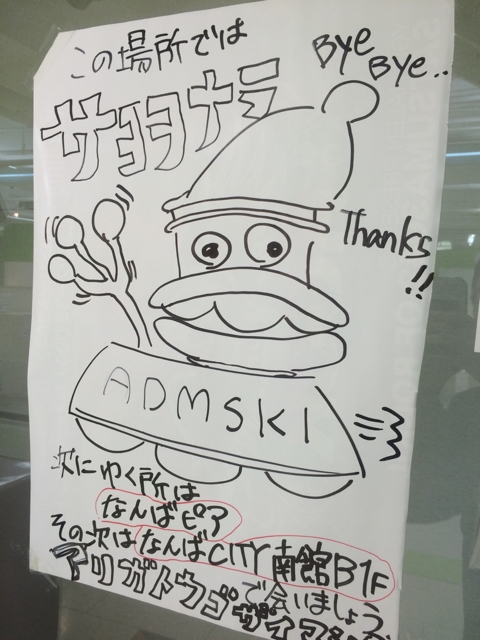 この場所では
Bye
Bye..
サヨヨナラ
Thanks
!!
ADMSKI
次にゆく所は
なんばピア
その次はなんばCITY南館B1F
で会いましょう
アリガトウゴザイマ